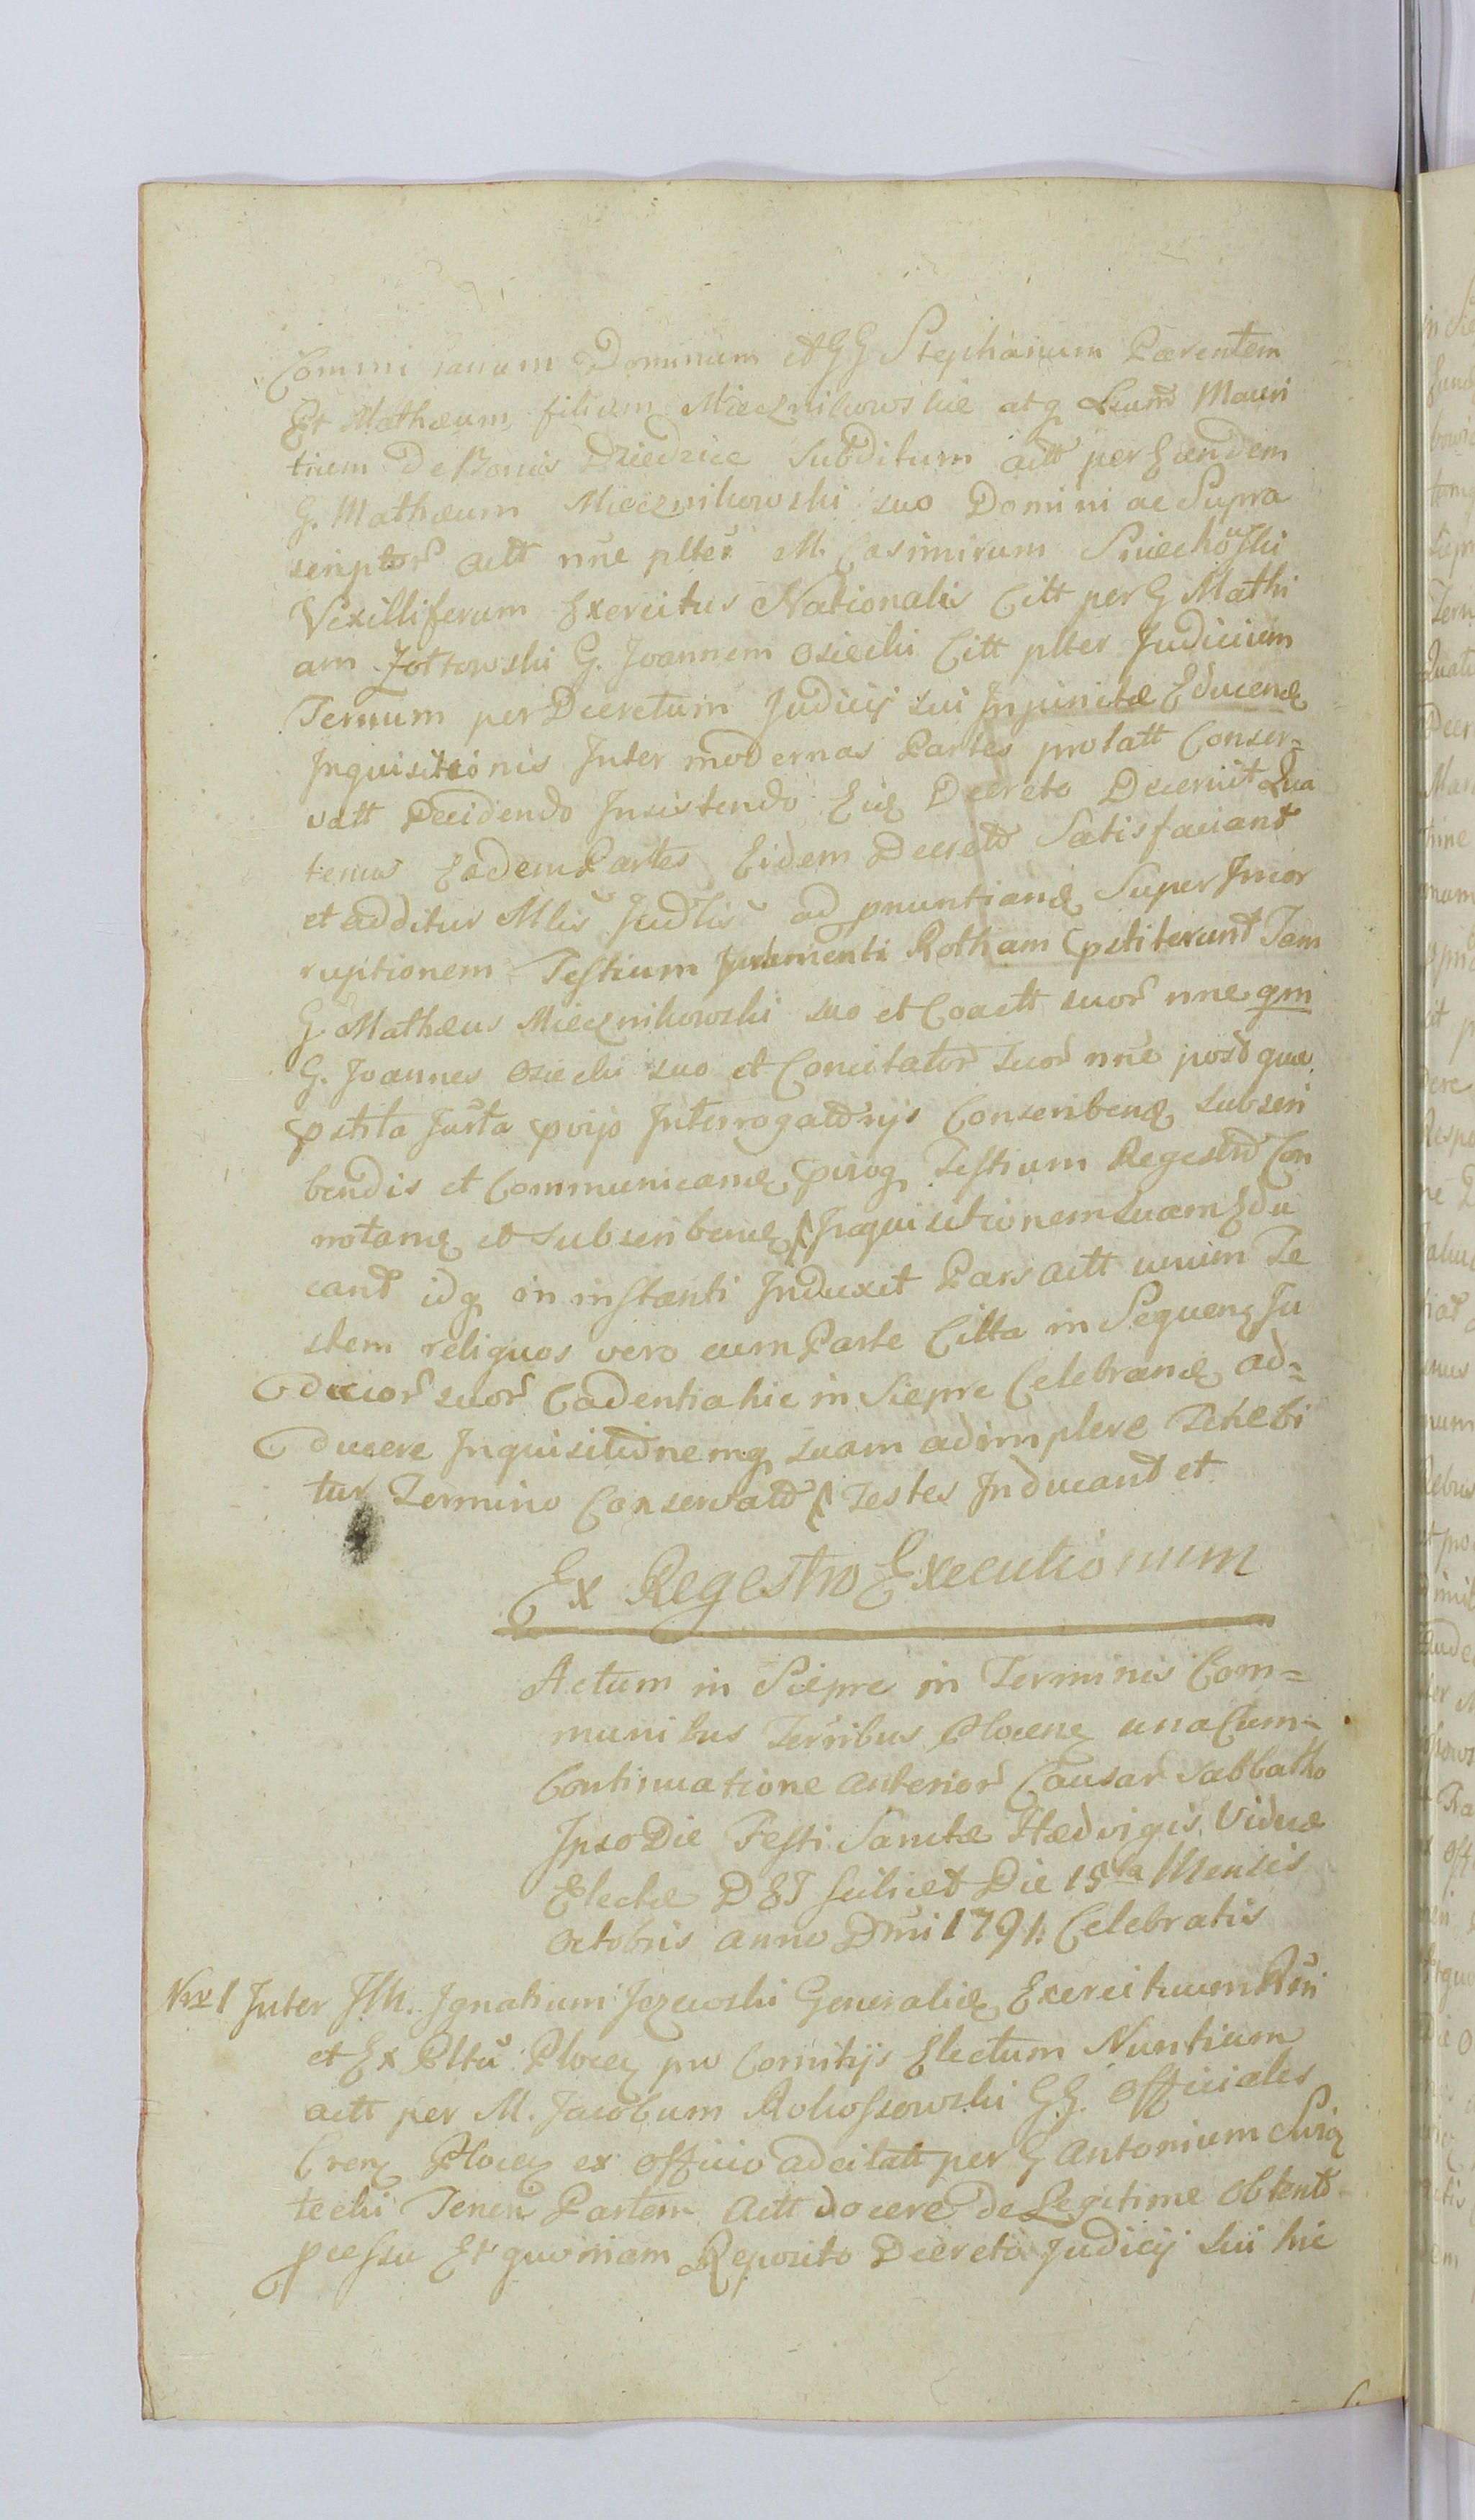 Commissarium Dominum et GG Stephanum Parentem
Et Mathæum filium Miecznikowskie atq
tium De Bonis Dziedzice Subditum actt per Eundem
G. Mathæum Miecznikowski suo Domini ac Supra
scriptor actt nne plter M. Casimirum Sniechowski
Vexilliferum Exercitus Nationalis Citt per G Mathi
am Zołtowski G. Joannem Osiecki Citt plter Judicium
Terrum per Decretum Judicij sui Injunctæ Educenæ
Inquisitionis Inter modernas Partes prolatt Conser=
vatt Decidendo Insistendo Decreto Decernit Qua
tenus Eædem Partes Eidem Decreto Satisfaciant
et additur Mlis Judlis ad pnuntiand Super Inior
ruptionem Testium Juramenti Rotham pstiterunt Tam
G. Mathæus Miecznikowski suo et Coactt suor nne qm
G. Joannes Osiecki suo et Concitator suor nne post quæ
pstita Jurta pvijs Interrogatorijs Conscribend subscri
bendis et Communicand pviog Testium Regestro Con
notand et subscribend Inquisitionem suam Edu
cant idq in instanti Induxit Pars actt unum Te
stem reliquos vero cum Parte Citta in Sequen Ju
dicior suor Cadentia hic in Sieprc Celebrand ad=
ducere Inquisitionemq suam adimplere Tenebi
tur Termino Conservato Testes Inducant et
Ex Regestro Executionum
Actum in Sieprc in Terminis Com=
munibus Terribus Plocen una Cum
Continuatione anterior Causar Sabbatho
Ipso Die Festi Sanctæ Hedvigis Viduæ
Electæ D E T scilicet Die 15ta Mensis
Octobris anno Dmi 1791 Celebratis
Nro 1 Inter Ill. Ignatium Jezewski Generaliæ Exercituum Rni
et Ex Pltu Plocen pro Comitijs Electum Nuntium
actt per M. Jacobum Rokossowski GG. Officiales
Cren Plocen ex officio adcitatt per G Antonium Świę
tecki Tenen Partem Actt docere de Legitime obtento
pcessu Et quoniam Reposito Decreto Judicij sui hic